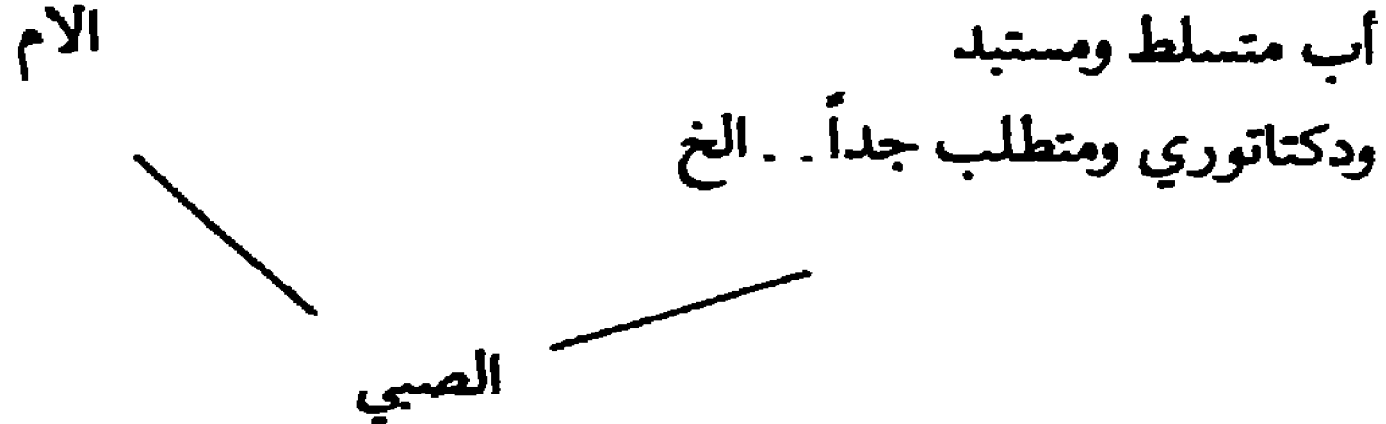 أب متسلط ومستبد
ودكتاتوري ومتطلب جداً . . الخ
الام
الصبي